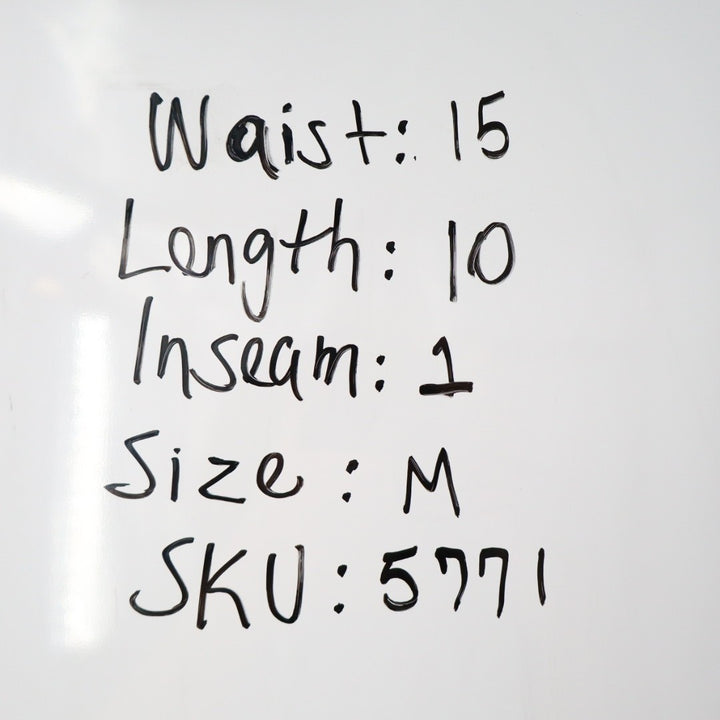 Waist: 15
Length: 10
Inseam: 1
Size: M
SKU: 5771